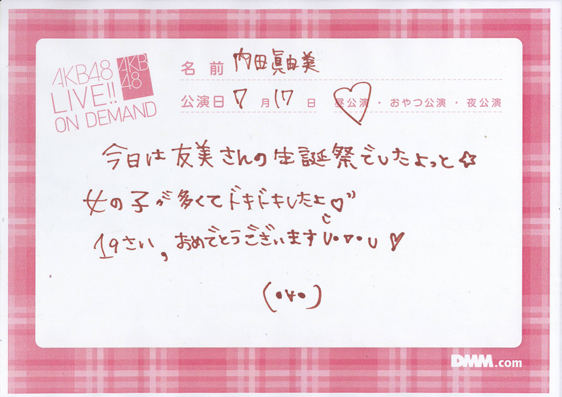 AKB48
LIVE!!
ON DEMAND
AKB
48
名前 内田眞由美
公演日 7月17日 昼公演・おやつ公演・夜公演
今日は友美さんの生誕祭でしたよっと☆
女の子が多くてドキドキしたよ♡"
19さい,おめでとうございますU・ᴥ・U♡
(・v・)
DMM.com